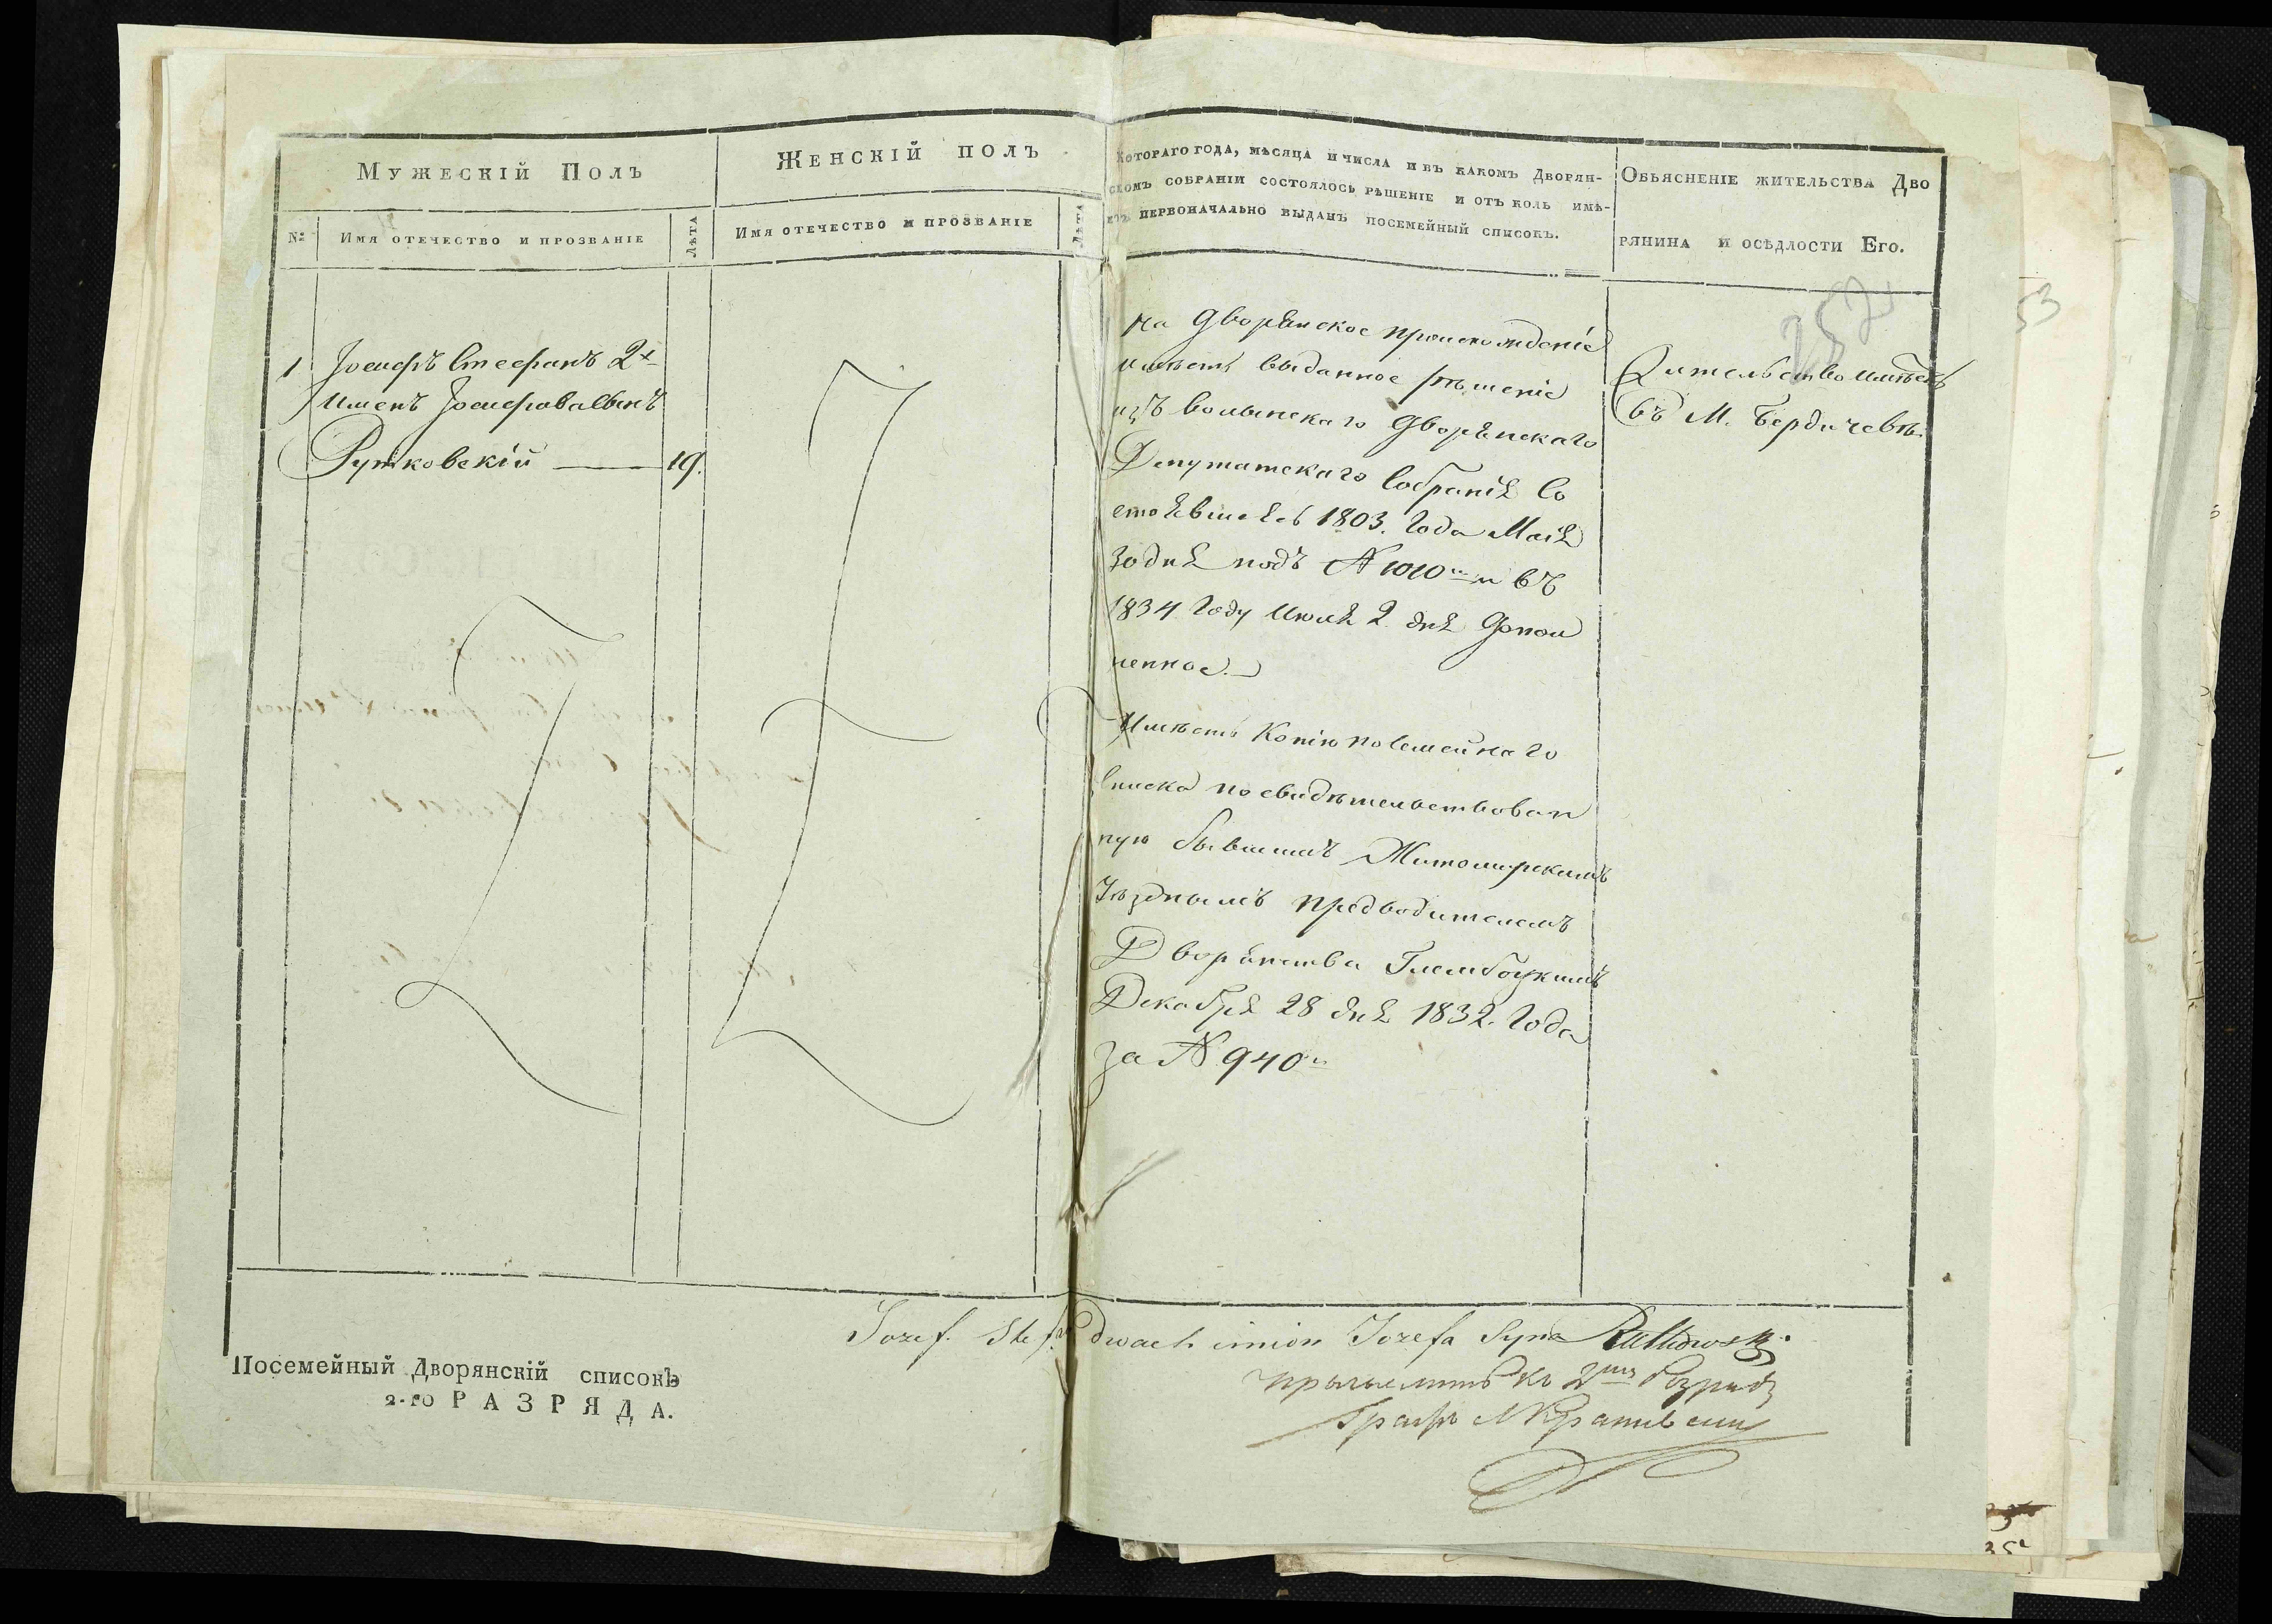 Мужескій Полъ
Женскій полъ
Котораго года, мѣсяца и числа и въ какомъ Дворян-
скомъ собраніи состоялось рѣшеніе и отъ коль имѣ-
етъ первоначально выданъ посемейный списокъ.
Объясненіе жительства Дво
рянина и осѣдлости Его.
№
Имя отечество и прозваніе
Лѣта
Имя отечество и прозваніе
Лѣта
1 Іосифъ Стефанъ 2х
Именъ Іосифовъ Сынъ
Рутковскій — 19.
на Дворянское происхожденіе
имѣетъ выданное рѣшеніе
изъ Волынскаго Дворянскаго
Депутатскаго Собранія Со
стоявшееся 1803. Года Маія
30 дня подъ № 1010 и въ
1834 Году Июля 2. дня Допол
ненное.
Имѣетъ Копію посемейнаго
Списка посвидѣтельствован
ную бывшимъ Житомирскимъ
Уѣзднымъ предводителемъ
Дворянства Глембоцкимъ
Декабря 28 дня 1832. Года
за № 940
252
Жительство имѣетъ
въ М. Бердичевѣ.
53
Jozef. Stefan dwach imion Jozefa Syna Rutkowski.
Посемейный Дворянскій списокъ
2-го РАЗРЯДА.
къ 2му Разряду
Графъ
35